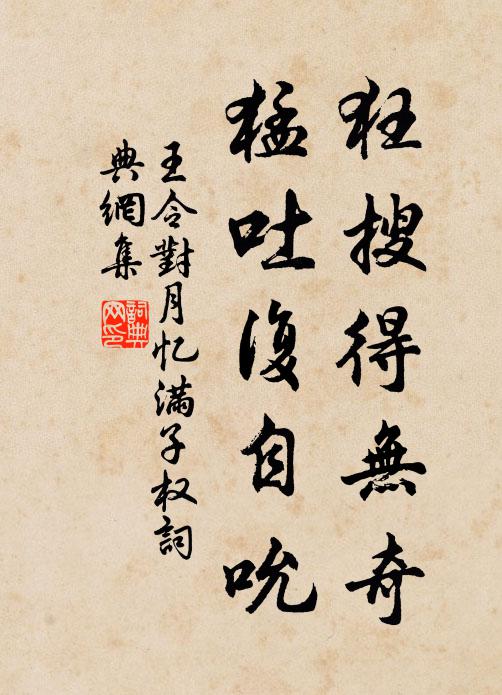 狂搜得無奇
猛吐復自吮
王令對月忆滿子权詞
典網集
詞典
网印